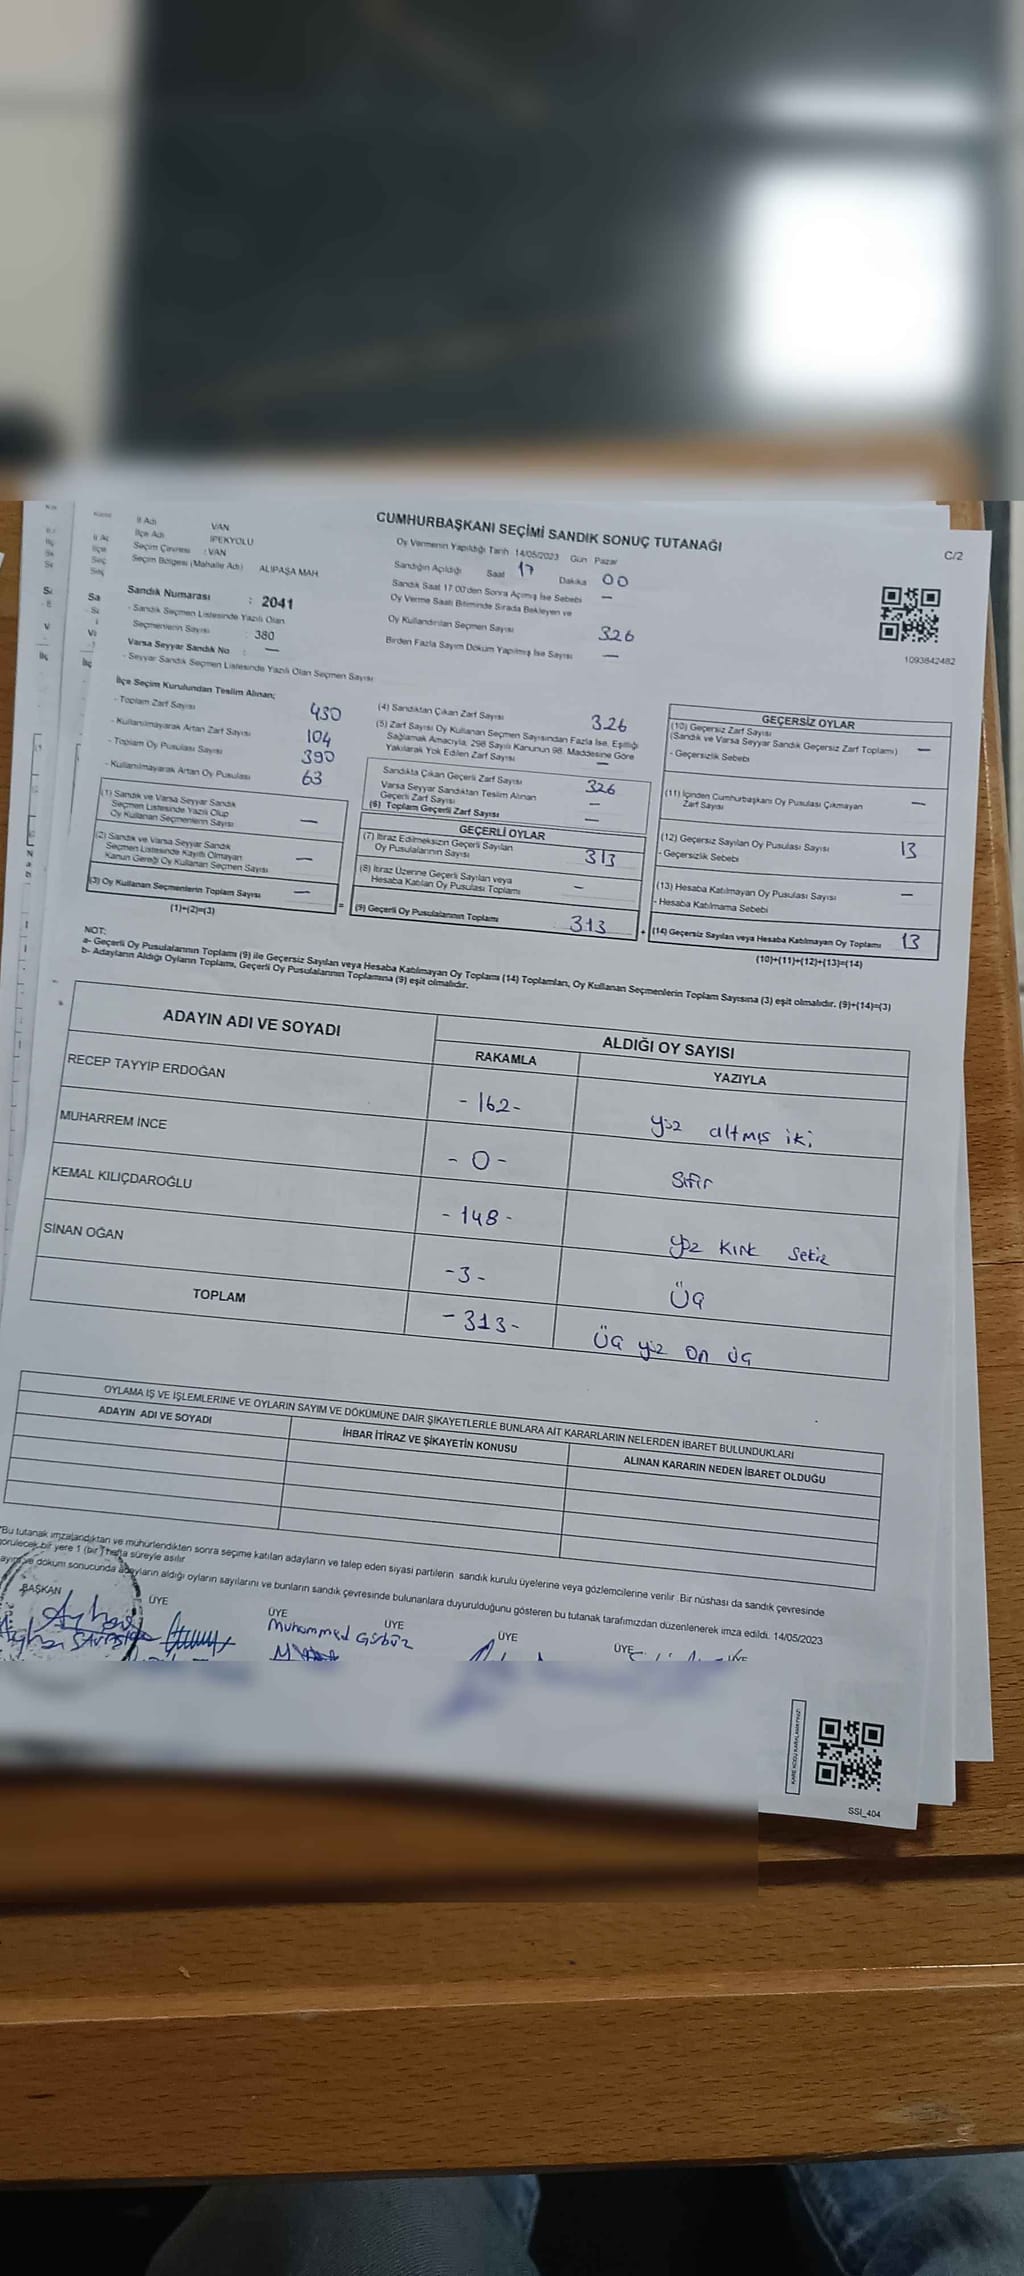 CUMHURBAŞKANI SEÇİMİ SANDIK SONUÇ TUTANAĞI
C/2
İl Adı VAN
İlçe Adı İPEKYOLU
Seçim Çevresi : VAN
Seçim Bölgesi (Mahalle Adı) ALIPAŞA MAH
Sandık Numarası : 2041
- Sandık Seçmen Listesinde Yazılı Olan
Seçmenlerin Sayısı : 380
Varsa Seyyar Sandık No : —
- Seyyar Sandık Seçmen Listesinde Yazılı Olan Seçmen Sayısı
Oy Vermenin Yapıldığı Tarih 14/05/2023 Gün Pazar
Sandığın Açıldığı Saat 17 Dakika 00
Sandık Saat 17 00'den Sonra Açımış İse Sebebi —
Oy Verme Saati Bitiminde Sırada Bekleyen ve
Oy Kullandırılan Seçmen Sayısı 326
Birden Fazla Sayım Döküm Yapılmış İse Sayısı —
1093842482
İlçe Seçim Kurulundan Teslim Alınan;
- Toplam Zarf Sayısı 430
- Kullanılmayarak Artan Zarf Sayısı 104
- Toplam Oy Pusulası Sayısı 390
- Kullanılmayarak Artan Oy Pusulası 63
(1) Sandık ve Varsa Seyyar Sandık
Seçmen Listesinde Yazılı Olup
Oy Kullanan Seçmenlerin Sayısı —
(2) Sandık ve Varsa Seyyar Sandık
Seçmen Listesinde Kayıtlı Olmayan
Kanun Gereği Oy Kullanan Seçmen Sayısı —
(3) Oy Kullanan Seçmenlerin Toplam Sayısı —
(1)+(2)=(3)
(4) Sandıktan Çıkan Zarf Sayısı 326
(5) Zarf Sayısı Oy Kullanan Seçmen Sayısından Fazla İse, Eşitliği
Sağlamak Amacıyla, 298 Sayılı Kanunun 98. Maddesine Göre
Yakılarak Yok Edilen Zarf Sayısı —
Sandıkta Çıkan Geçerli Zarf Sayısı 326
Varsa Seyyar Sandıktan Teslim Alınan
Geçerli Zarf Sayısı —
(6) Toplam Geçerli Zarf Sayısı —
GEÇERLİ OYLAR
(7) İtiraz Edilmeksizin Geçerli Sayılan
Oy Pusulalarının Sayısı 313
(8) İtiraz Üzerine Geçerli Sayılan veya
Hesaba Katılan Oy Pusulası Toplamı —
(9) Geçerli Oy Pusulalarının Toplamı 313
GEÇERSİZ OYLAR
(10) Geçersiz Zarf Sayısı
(Sandık ve Varsa Seyyar Sandık Geçersiz Zarf Toplamı) —
- Geçersizlik Sebebi
(11) İçinden Cumhurbaşkanı Oy Pusulası Çıkmayan
Zarf Sayısı —
(12) Geçersiz Sayılan Oy Pusulası Sayısı 13
- Geçersizlik Sebebi
(13) Hesaba Katılmayan Oy Pusulası Sayısı —
- Hesaba Katılmama Sebebi
(14) Geçersiz Sayılan veya Hesaba Katılmayan Oy Toplamı 13
(10)+(11)+(12)+(13)=(14)
NOT:
a- Geçerli Oy Pusulalarının Toplamı (9) ile Geçersiz Sayılan veya Hesaba Katılmayan Oy Toplamı (14) Toplamları, Oy Kullanan Seçmenlerin Toplam Sayısına (3) eşit olmalıdır. (9)+(14)=(3)
b- Adayların Aldığı Oyların Toplamı, Geçerli Oy Pusulalarının Toplamına (9) eşit olmalıdır.
ADAYIN ADI VE SOYADI
ALDIĞI OY SAYISI
RAKAMLA YAZIYLA
RECEP TAYYİP ERDOĞAN - 162 - yüz altmış iki
MUHARREM İNCE - 0 - Sıfır
KEMAL KILIÇDAROĞLU - 148 - yüz kırk sekiz
SİNAN OĞAN - 3 - Üç
TOPLAM - 313 - Üç yüz on üç
OYLAMA İŞ VE İŞLEMLERİNE VE OYLARIN SAYIM VE DÖKÜMÜNE DAİR ŞİKAYETLERLE BUNLARA AİT KARARLARIN NELERDEN İBARET BULUNDUKLARI
ADAYIN ADI VE SOYADI İHBAR İTİRAZ VE ŞİKAYETİN KONUSU ALINAN KARARIN NEDEN İBARET OLDUĞU
*Bu tutanak imzalandıktan ve mühürlendikten sonra seçime katılan adayların ve talep eden siyasi partilerin sandık kurulu üyelerine veya gözlemcilerine verilir. Bir nüshası da sandık çevresinde
görülecek bir yere 1 (bir) hafta süreyle asılır
ve döküm sonucunda adayların aldığı oyların sayılarını ve bunların sandık çevresinde bulunanlara duyurulduğunu gösteren bu tutanak tarafımızdan düzenlenerek imza edildi. 14/05/2023
BAŞKAN ÜYE ÜYE ÜYE ÜYE ÜYE ÜYE
Muhammed Gürbüz
SSİ_404